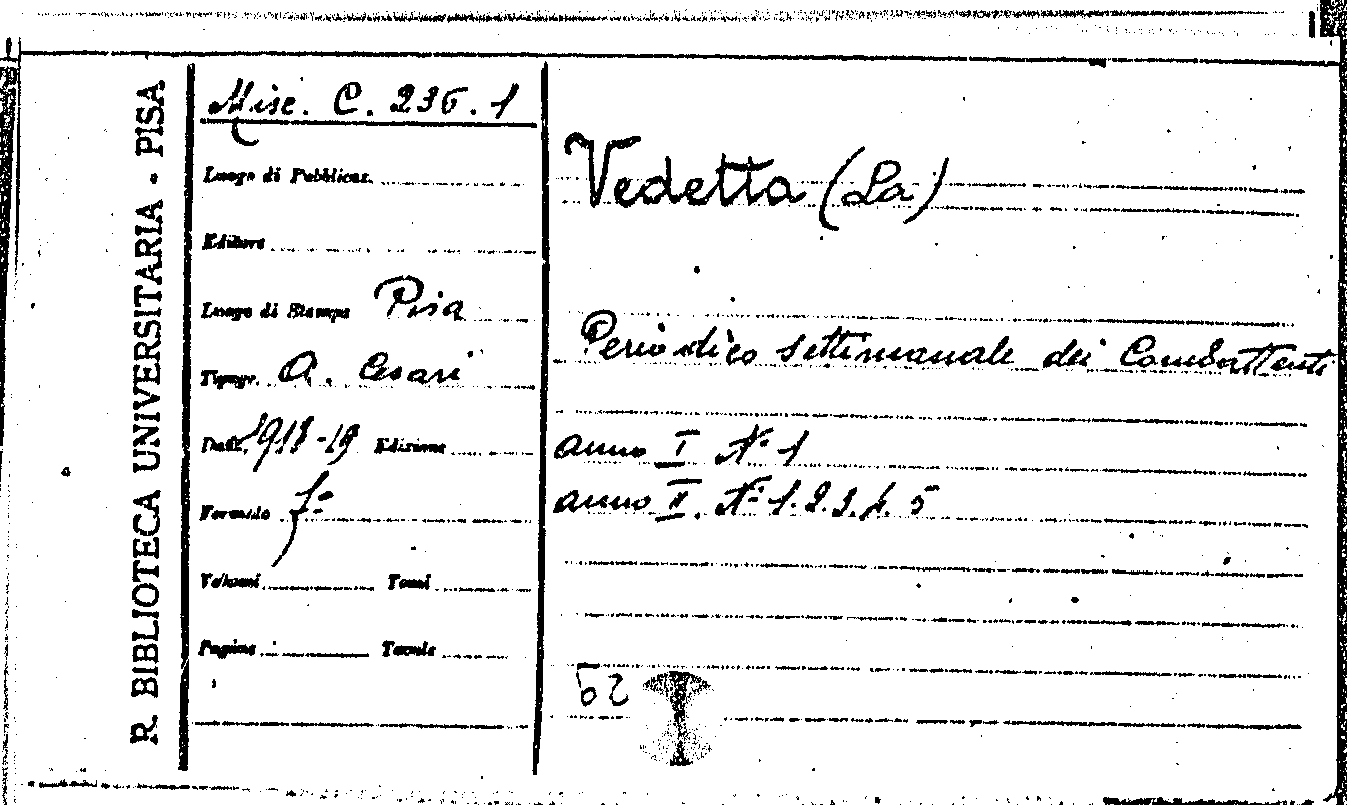 R. BIBLIOTECA UNIVERSITARIA - PISA
Misc. C. 236. 1
Luogo di Pubblicaz.
Editore
Luogo di Stampa Pisa
Tipogr. A. Cesari
Data 1918-19 Edizione
Formato f°
Volumi Tomi
Pagine Tavole
Vedetta (La)
Periodico settimanale dei Combattenti
anno I N° 1
anno II. N° 1. 2. 3. 4. 5
62